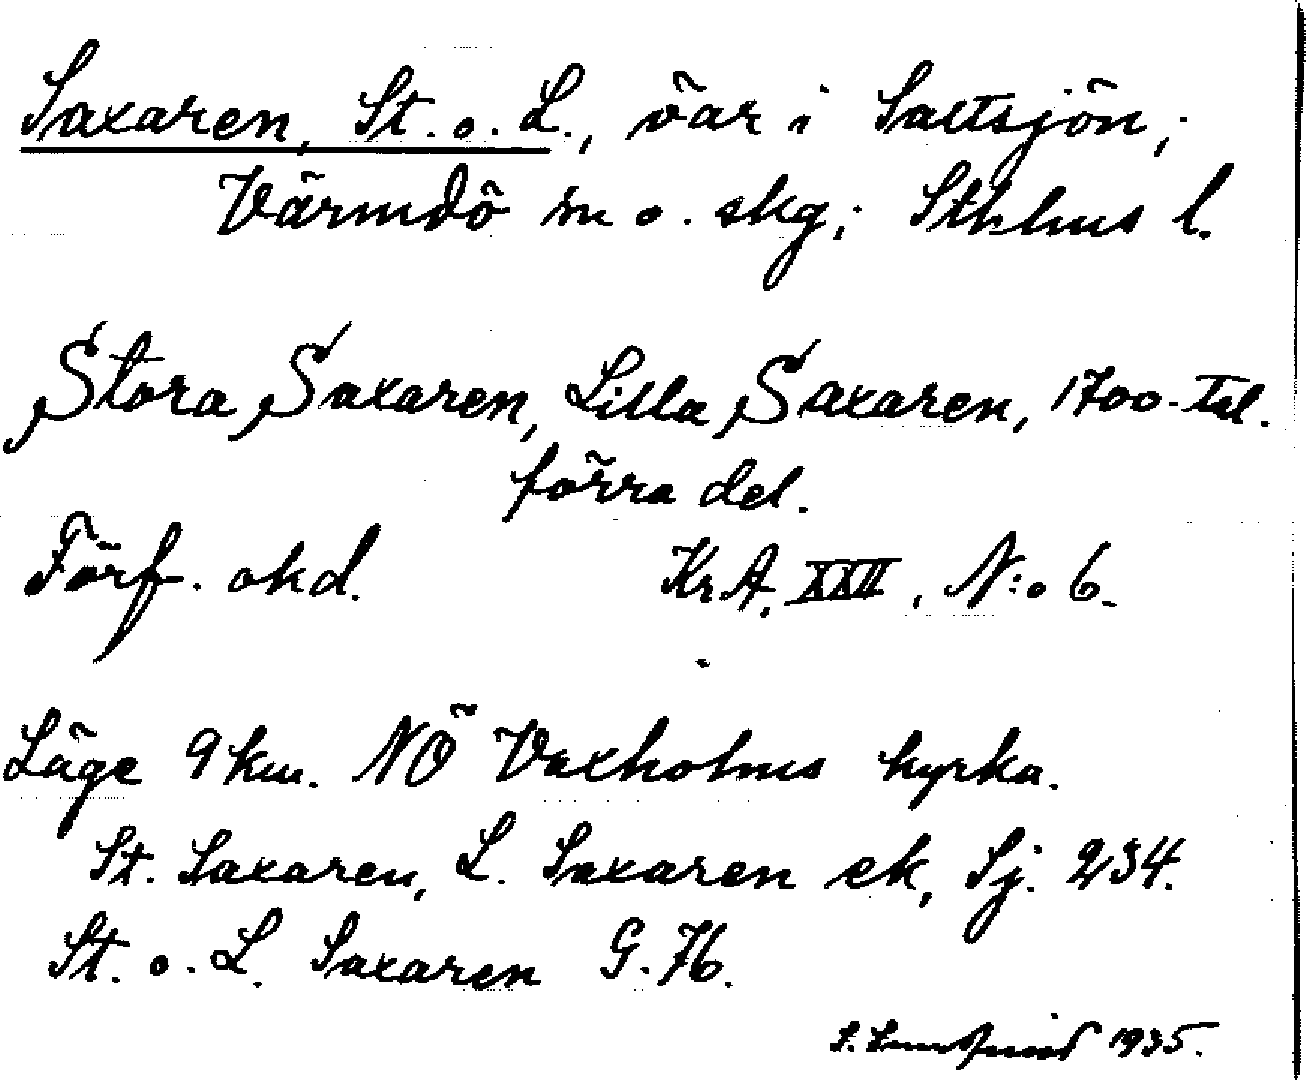 Saxaren, St. o. L., öar i Saltsjön,
Värmdö sn o. skg; Sthlms l.
Stora Saxaren, Lilla Saxaren, 1700-tal.
förra del.
Förf. okd. KrA, XXII, N:o 6.
Läge 9 km. NÖ Vaxholms kyrka.
St. Saxaren, L. Saxaren ek, Sj. 234.
St. o. L. Saxaren G. 76.
S. 1935.